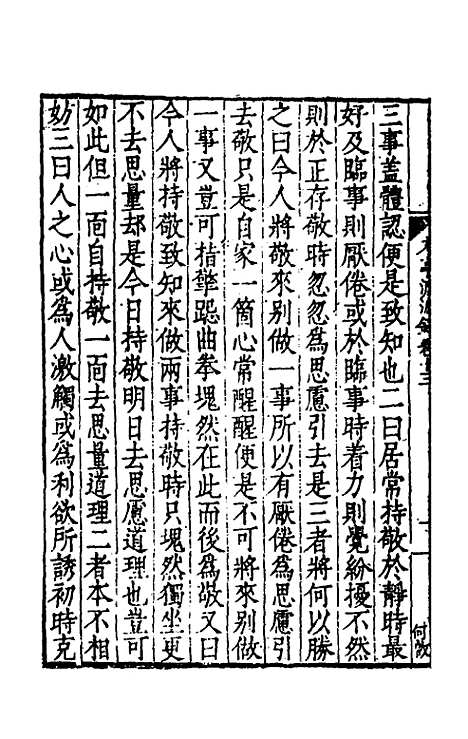 三事盖體認便是致知也二曰居常持敬於靜時最
好及臨事則厭倦或於臨事時着力則覺紛擾不然
則於正存敬時忽忽爲思慮引去是三者將何以勝
之曰今人將敬來别做一事所以有厭倦爲思慮引
去敬只是自家一箇心常醒醒便是不可將來别做
一事又豈可指擎跽曲拳塊然在此而後爲敬又曰
今人將持敬致知來做兩事持敬時只塊然獨坐更
不去思量却是今日持敬明日去思慮道理也豈可
如此但一面自持敬一面去思量道理二者本不相
妨三曰人之心或爲人激觸或爲利欲所誘初時克